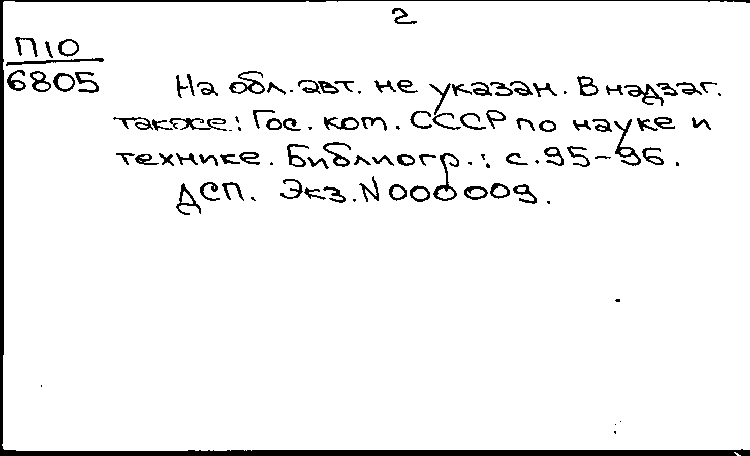 2
П10
6805
На обл. авт. не указан. В надзаг.
также: Гос. ком. СССР по науке и
технике. Библиогр.: с. 95-96.
ДСП. Экз. N 000009.